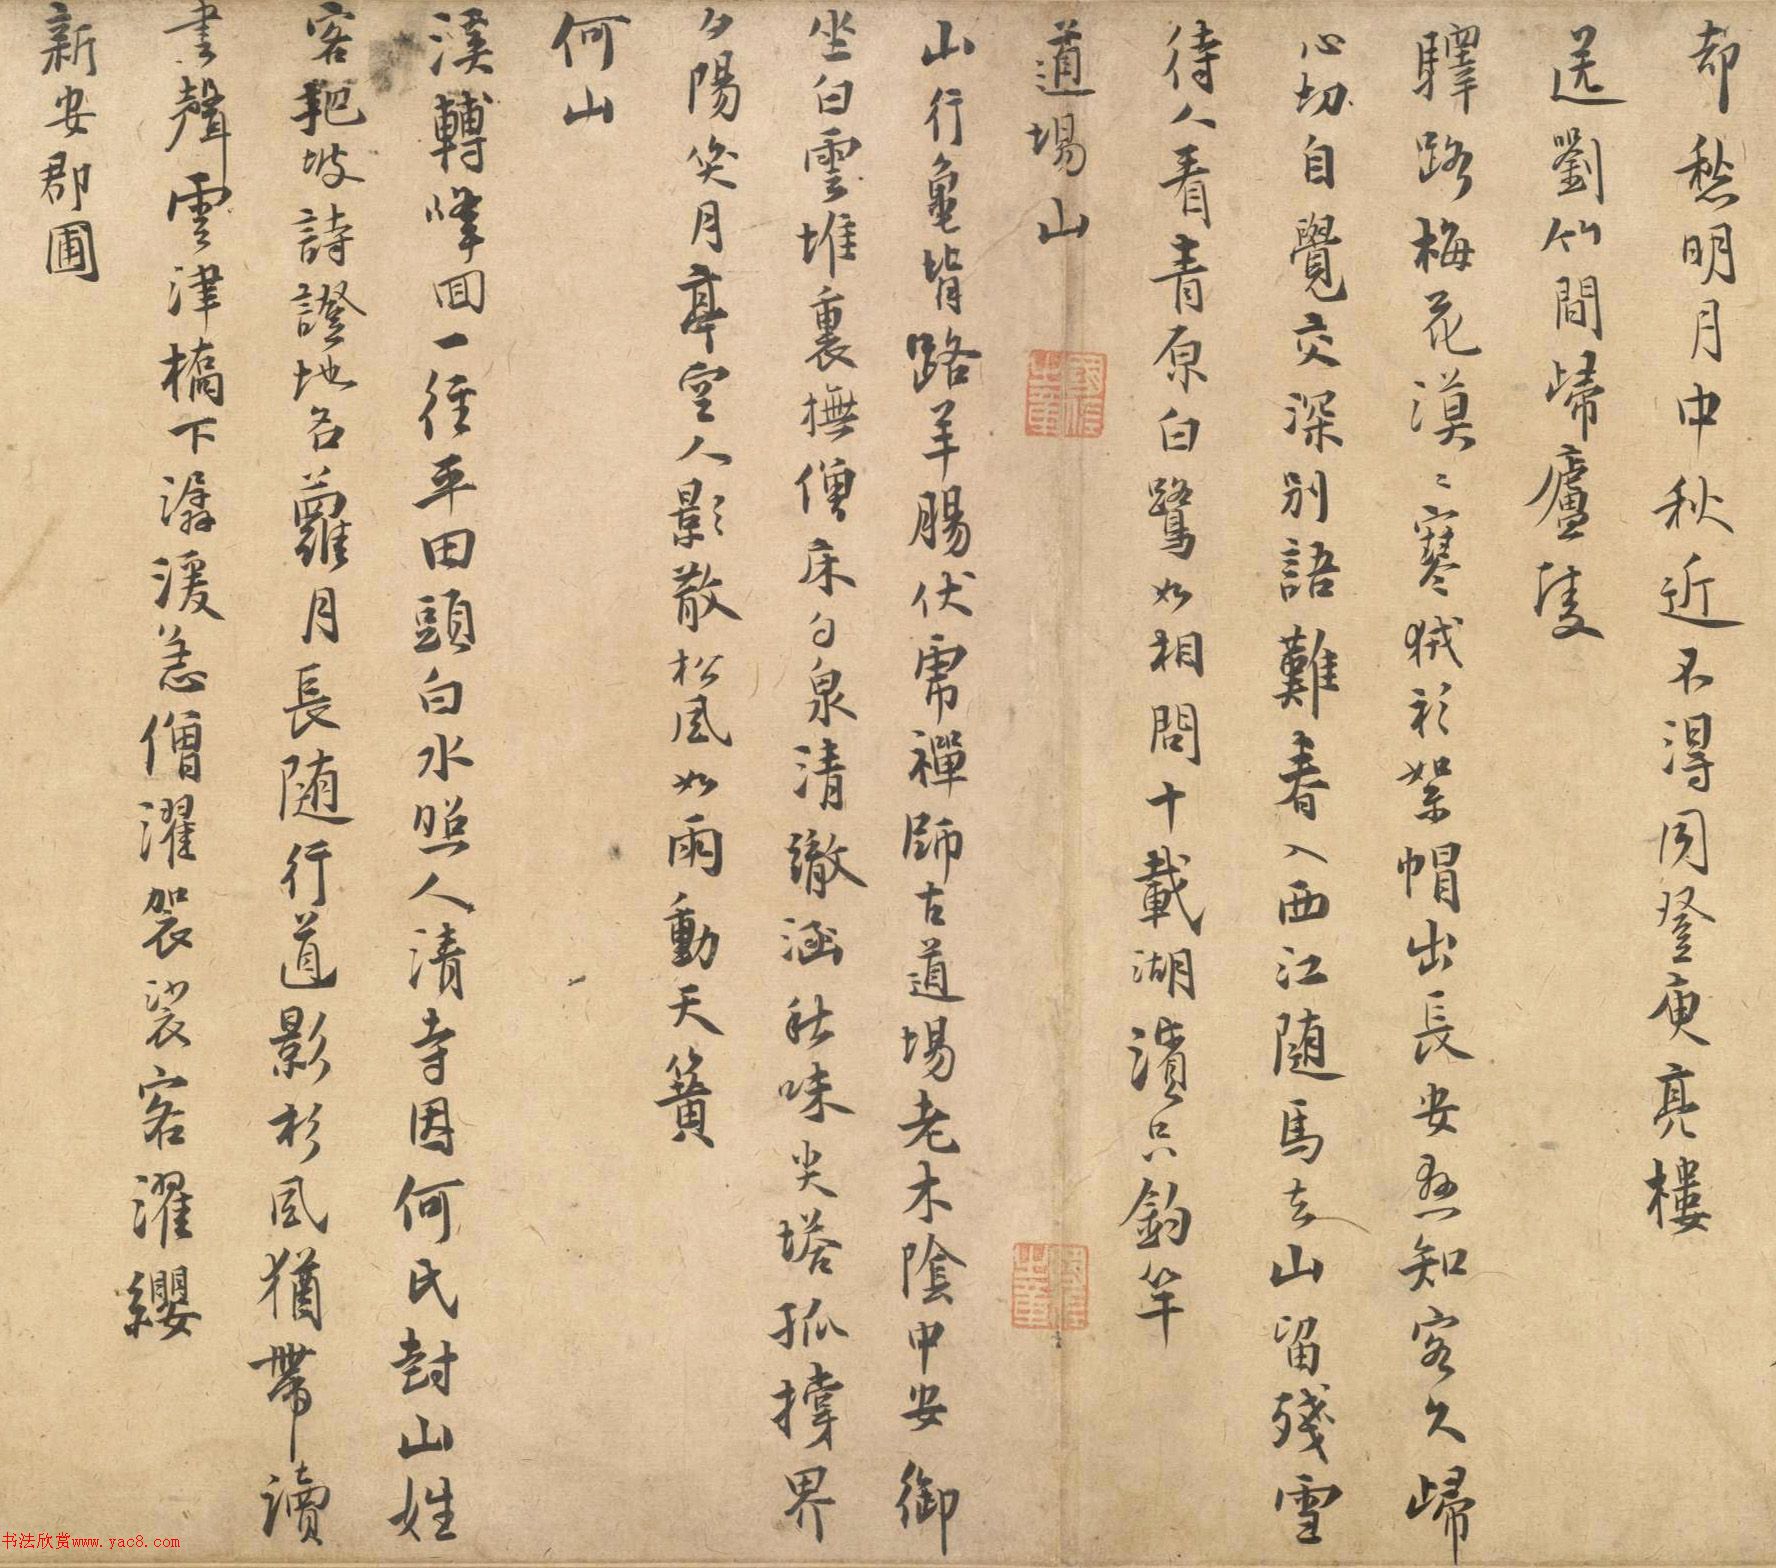 却愁明月中秋近不得同登庾亮樓
送劉竹間歸廬陵
驛路梅花漠〻寒狨衫絮帽出長安熟知客久歸
心切自覺交深別語難春入西江隨馬去山留殘雪
待人看青原白鷺如相問十載湖濱只釣竿
道場山
山行龜背路羊腸伏虎禪師古道場老木陰中安御
坐白雲堆裏撫僧床勺泉清澈涵秋味尖塔孤撐界
夕陽笑月亭空人影散松風如雨動天簧
何山
溪轉峰回一徑平田頭白水照人清寺因何氏封山姓
客把坡詩證地名蘿月長隨行道影杉風猶帶讀
書聲雲津橋下潺湲急僧濯袈裟客濯纓
新安郡圃
书法欣赏www.yac8.com